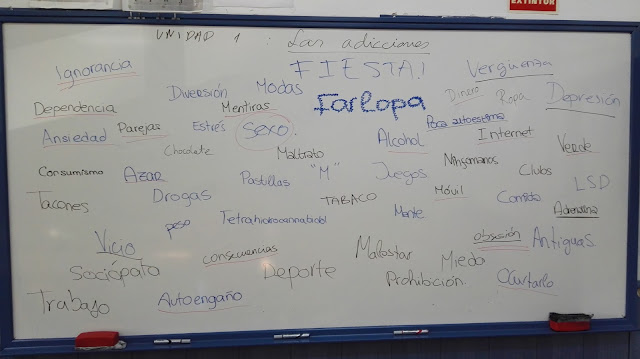 EXTINTOR
UNIDAD 1 : Las adicciones
Ignorancia
FIESTA!
Vergüenza
Diversión
Modas
Dinero
Ropa
Depresión
Dependencia
Mentiras
Farlopa
Poca autoestima
Ansiedad
Parejas
Estrés
Sexo!
Alcohol
Internet
Verde
Chocolate
Maltrato
Ninfómanas
Consumismo
Azar
Pastillas "M"
Juegos
Clubs
LSD
Tacones
Drogas
TABACO
Móvil
Comida
Adrenalina
peso
Tetrahidrocannabidol
Mente
Vicio
consecuencias
Malostar
obsesión
Antiguas
Sociópata
Deporte
Miedo
Prohibición
Ocultarlo
Trabajo
Autoengaño